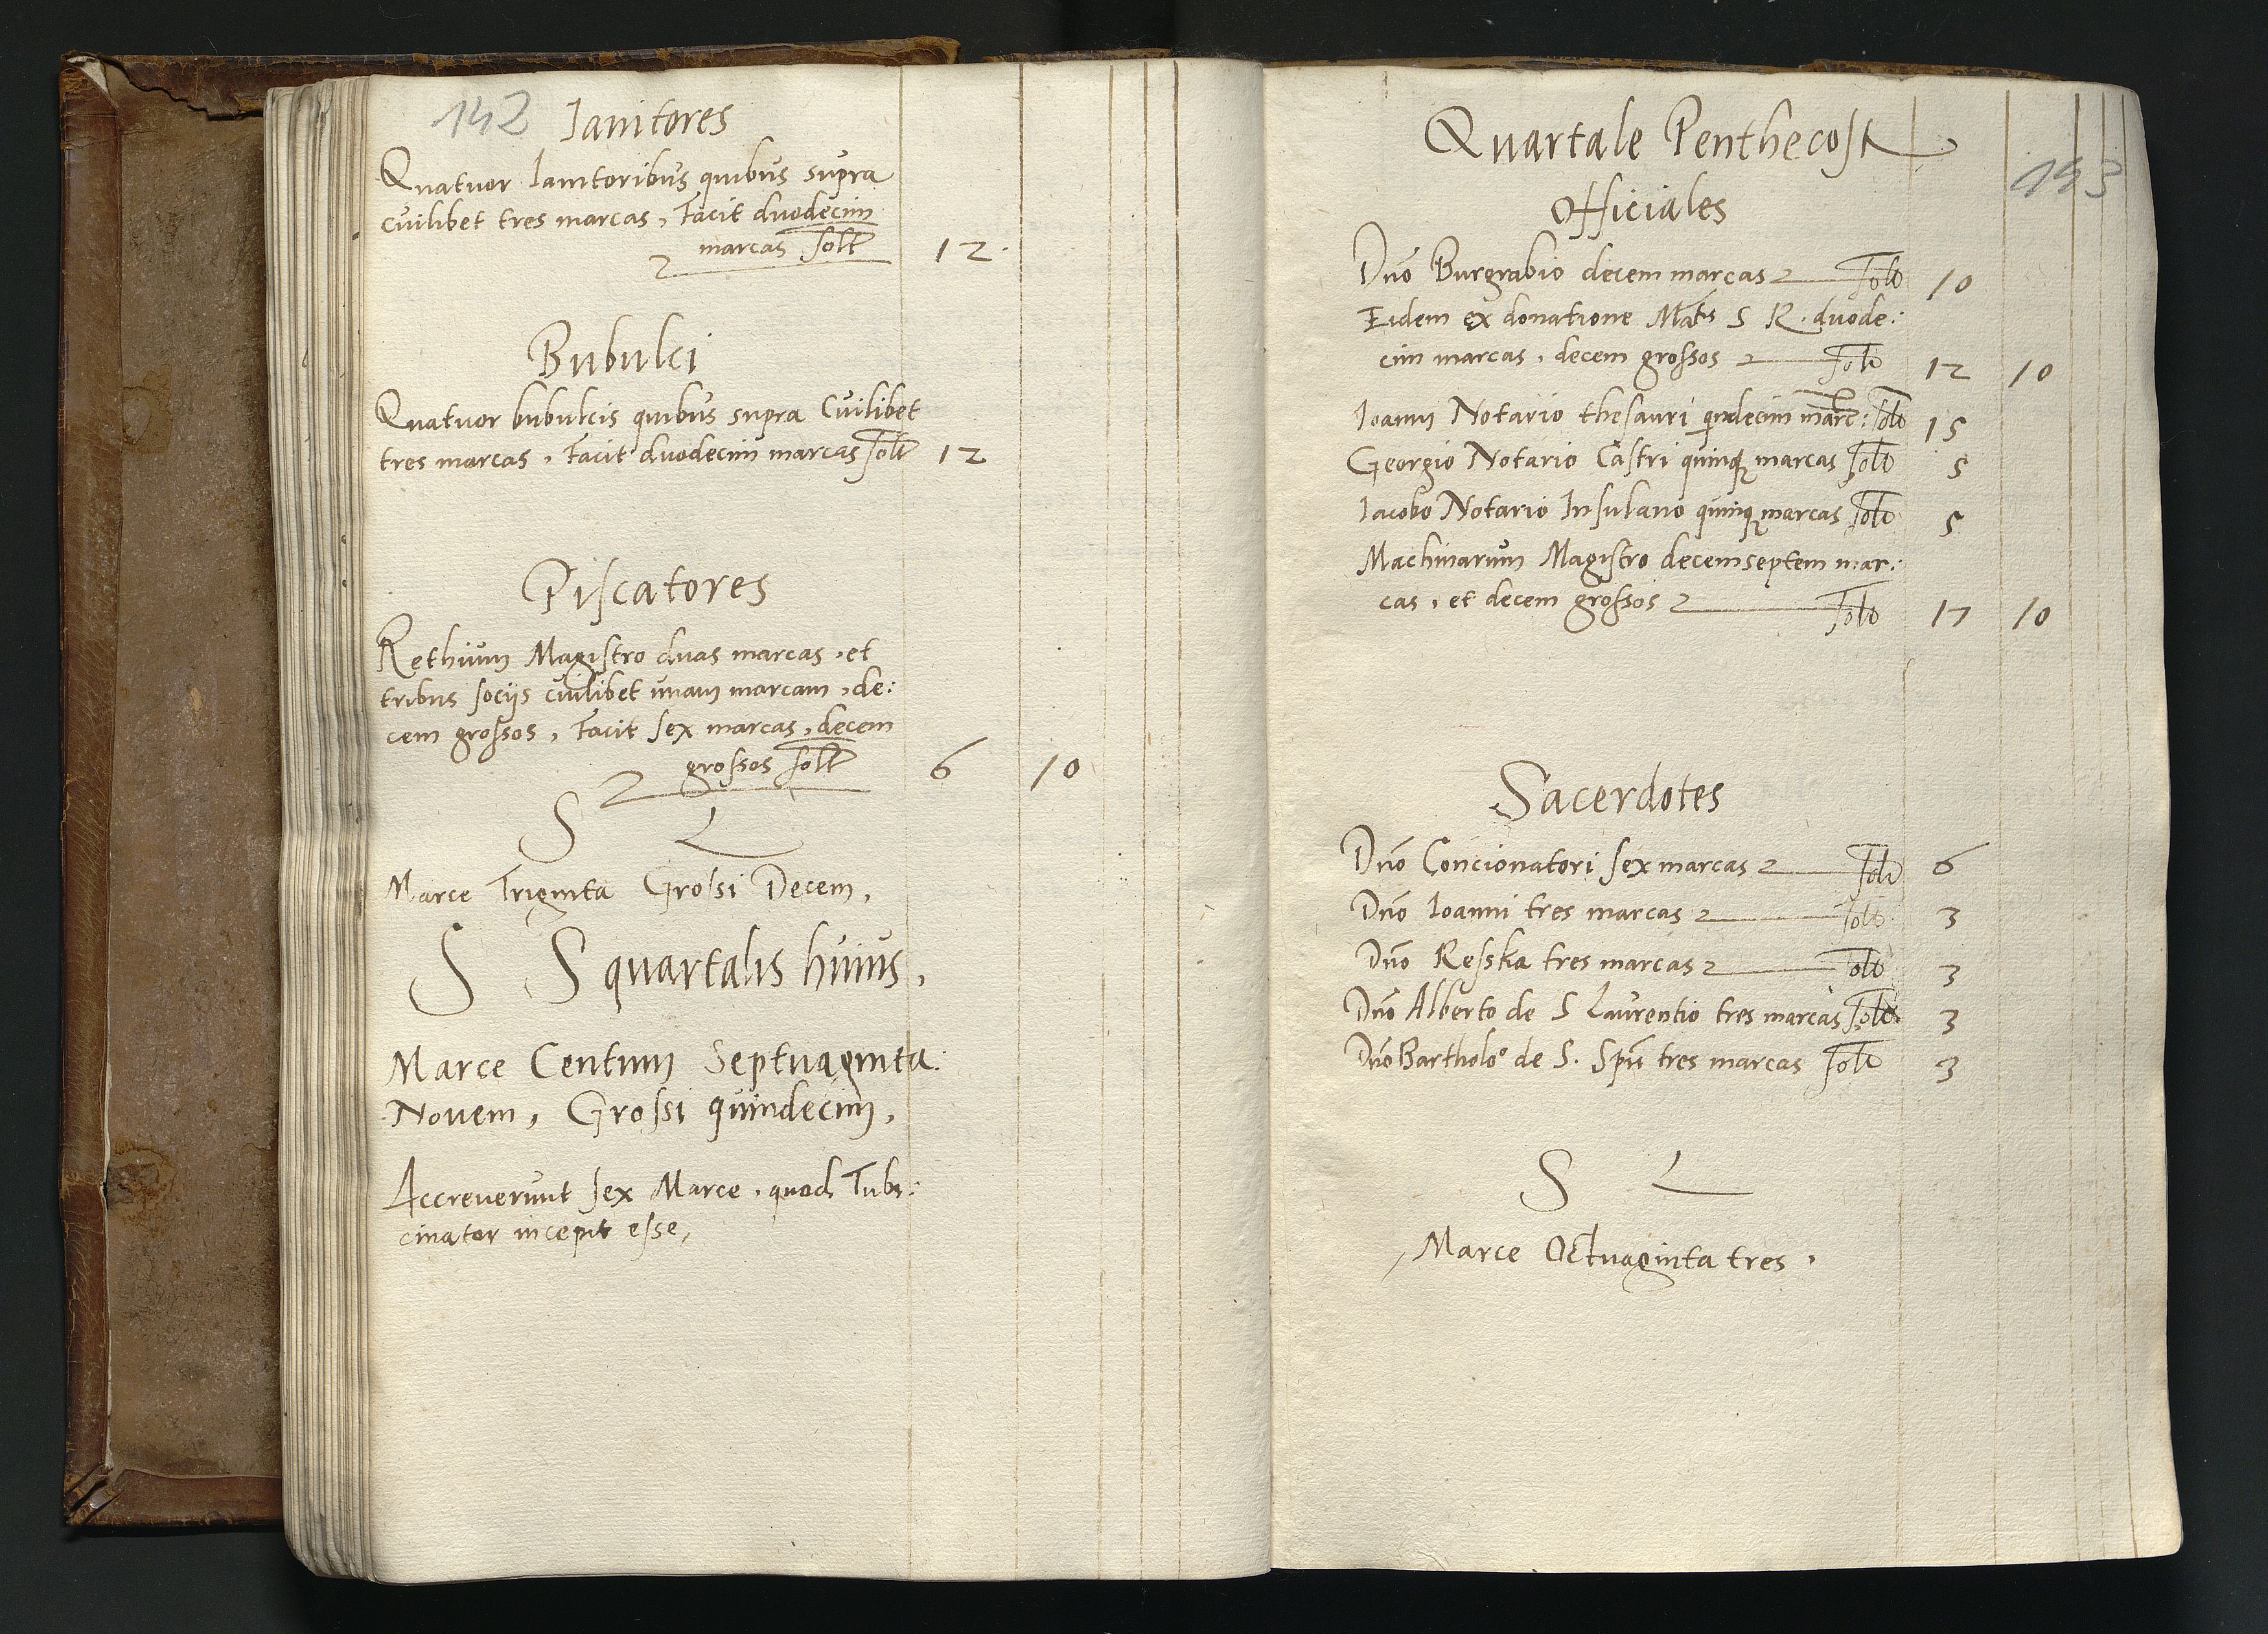 142 Ianitores
Quatuor Ianitoribus quibus supra
cuilibet tres marcas, Facit duodecim
marcas solt 12
Bubulci
Quatuor bubulcis quibus supra Cuilibet
tres marcas, Facit duodecim marcas solt 12
Piscatores
Rethium Magistro duas marcas, et
tribus socijs cuilibet unam marcam, de:
cem grossos, Facit sex marcas, decem
grossos solt 6 10
S L
Marce Triginta Grossi Decem,
S S quartalis huius,
Marce Centum Septuaginta:
Novem, Grossi quindecim,
Accreverunt sex Marce, quod Tubi:
cinator incepit esse,
Quartale Penthecost
143
Officiales
Dno Burgrabio decem marcas solt 10
Eidem ex donatione Mats S R. duode:
cim marcas, decem grossos solt 12 10
Ioanni Notario thesauri qindecim marc: solt 15
Georgio Notario Castri quinq marcas solt 5
Iacobo Notario Insulano quinq marcas solt 5
Machinarum Magistro decemseptem mar:
cas, et decem grossos solt 17 10
Sacerdotes
Dno Concionatori sex marcas solt 6
Dno Ioanni tres marcas solt 3
Dno Resska tres marcas solt 3
Dno Alberto de S Laurentio tres marcas solt 3
Dno Bartholo de S. Spu tres marcas solt 3
S L
Marce Octuaginta tres,